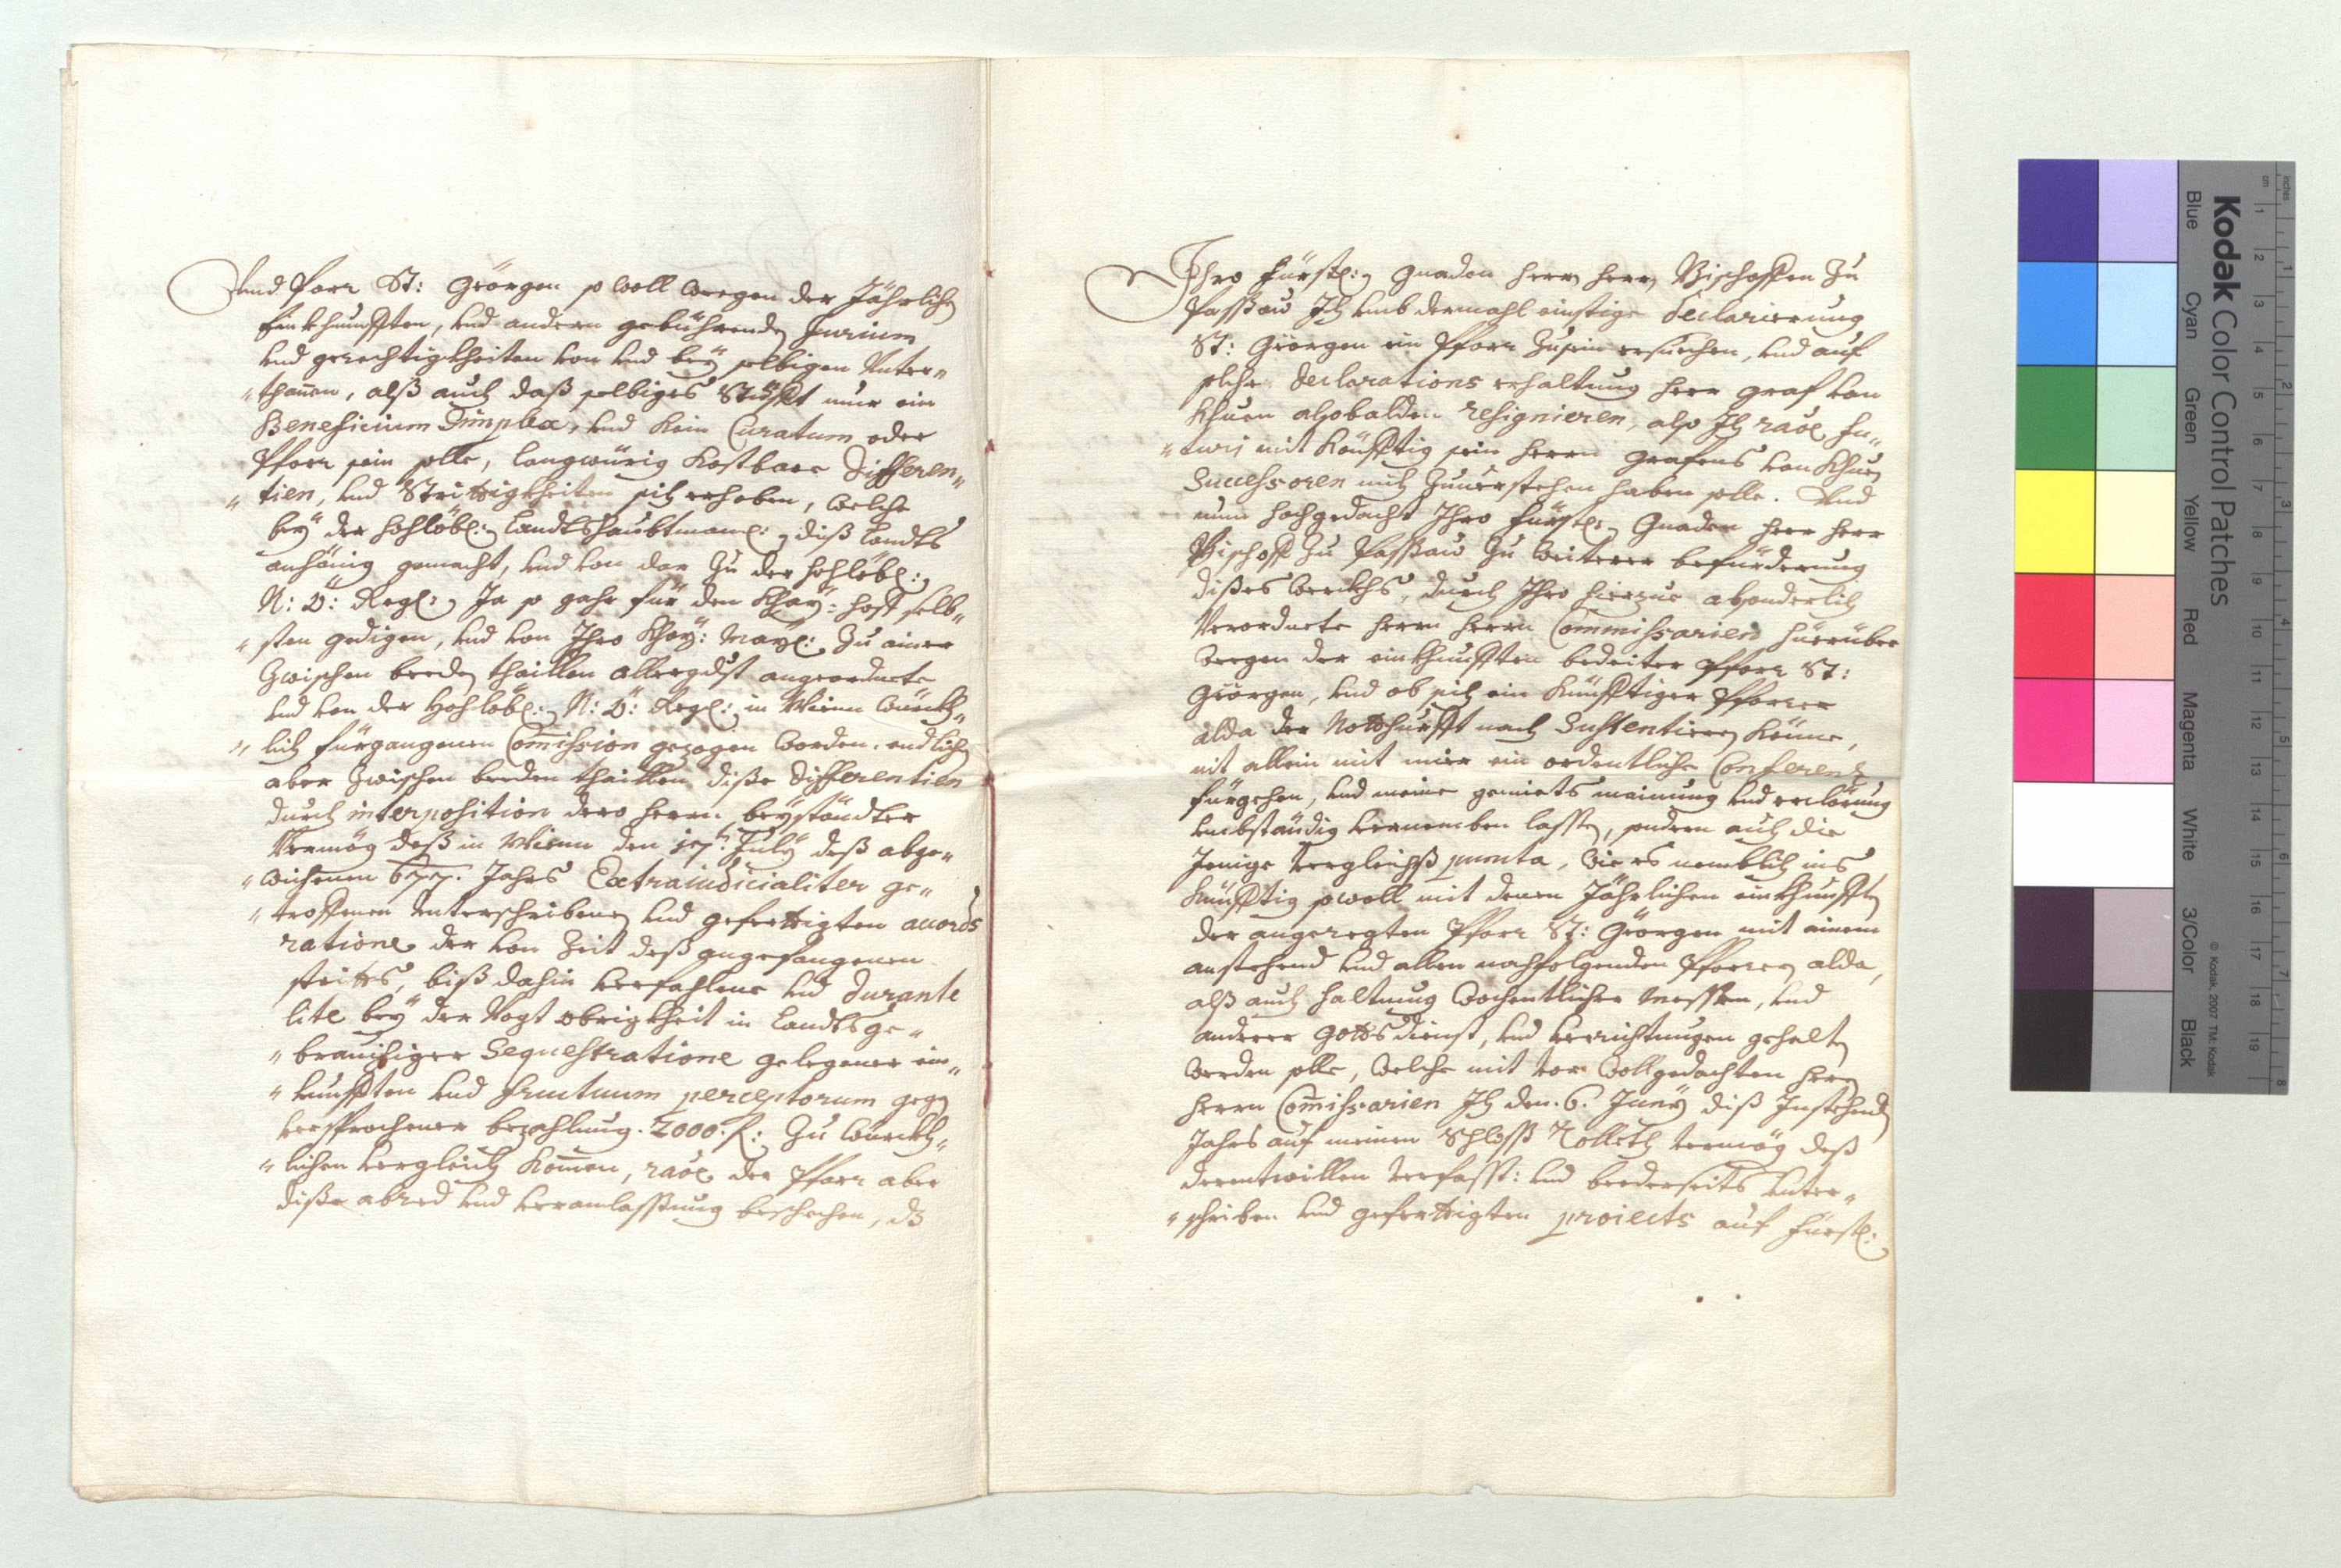 und Pfarr St: Geörgen so woll wegen der Jährlichen
einkhunfften, und andern gebührenden Jurium
und gerechtigkheiten von und bey selbigen Unter„
„thannen, alß auch daß selbiges Stüfft nur ein
Beneficium Simplex, und kein Curatum oder
Pfarr sein solle, langwürig kostbare Differen„
„tien, und Strittigkheiten sich erhoben, welche
bey der hochlöbl: Landtshaubtmanl: diß Landts
anhängig gemacht, und von dar zu der hochlöbl:
N: Ö: Regl: Ja so gahr für den Khay: hoff selb„
„sten gedigen, und von Ihro Khay: May: zu einer
zwischen beeden thaillen allergdst angeordnete
und von der Hochlöbl: N: Ö: Regl: in Wienn würckh„
„lich fürgangenen Commission gezogen worden, endlichen
aber zwischen beeden thaillen dise Differentien
durch interposition dero herrn beyständter
Vermög deß in Wienn den July deß abge„
„wichenen Jahrs Extraiudicialiter ge„
„troffenen unterschribenen und gefertigten accords
ratione der von Zeit deß angefangenen
stritts, biß dahin verfahlene und durante
lite bey der Vogt obrigkheit in Landtsge„
„breuchiger Sequestratione gelegener ein„
„kunfften und fructuum perceptorum gegen
versprochener bezahlung 2000 f: zu würckh„
„lichen vergleich kommen, raõe der Pfarr aber
dise abred und veranlassung beschehen, dz
Ihro Fürstl: Gnaden herrn herrn Bischoffen zu
Passau Ich umb dermahl einstige Declarierung
St: Geörgen ein Pfarr zusein ersuechen, und auf
solche Declarations erhaltung herr graf von
Khuen alsobalden resignieren, also Ich raõe fu„
„turi mit könfftig sein herrn grafens von Khuen
Successoren mich zuverstehen haben solle. Und
nun hochgedacht Ihro Fürstl: Gnaden herr herr
Bischoff zu Passau zu weiterer befürderung
dises werckhs, durch Ihro hierzue absonderlich
Verordnete herrn herrn Commissarien hierüber
wegen der einkhunfften bedeiter Pfarr St:
Geörgen, und ob sich ein künfftiger Pfarrer
alda der Notthurfft nach Sustentieren könne,
nit allein mit mier ein ordentliche Conferenz
fürgehen, und meine gemiets mainung und erclärung
umbständig vernemben lassen, sondern auch die
Jenige vergleichß puncta, wie es nemblich ins
künfftig sowoll mit denen Jährlichen einkhunfften
der angeregten Pfarr St: Geörgen mit einem
anstehend und allen nachfolgenden Pfarrern alda,
alß auch haltung wochentlicher Messen, und
anderer Gottsdienst, und verrichtungen gehalten
werden solle, welche mit vor wollgedachten herrn
herrn Commissarien Ich den 6. Juny diß Instehenden
Jahrs auf meinen Schloß Tolleth vermög deß
derentwillen verfasst: und beederseits unter„
„schriben und gefertigten proiects auf Fürstl:
Kodak Color Control Patches
Blue Cyan Green Yellow Red Magenta White 3/Color Black
© Kodak, 2007 TM: Kodak
inches 1 2 3 4 5 6 7 8
cm 1 2 3 4 5 6 7 8 9 10 11 12 13 14 15 16 17 18 19